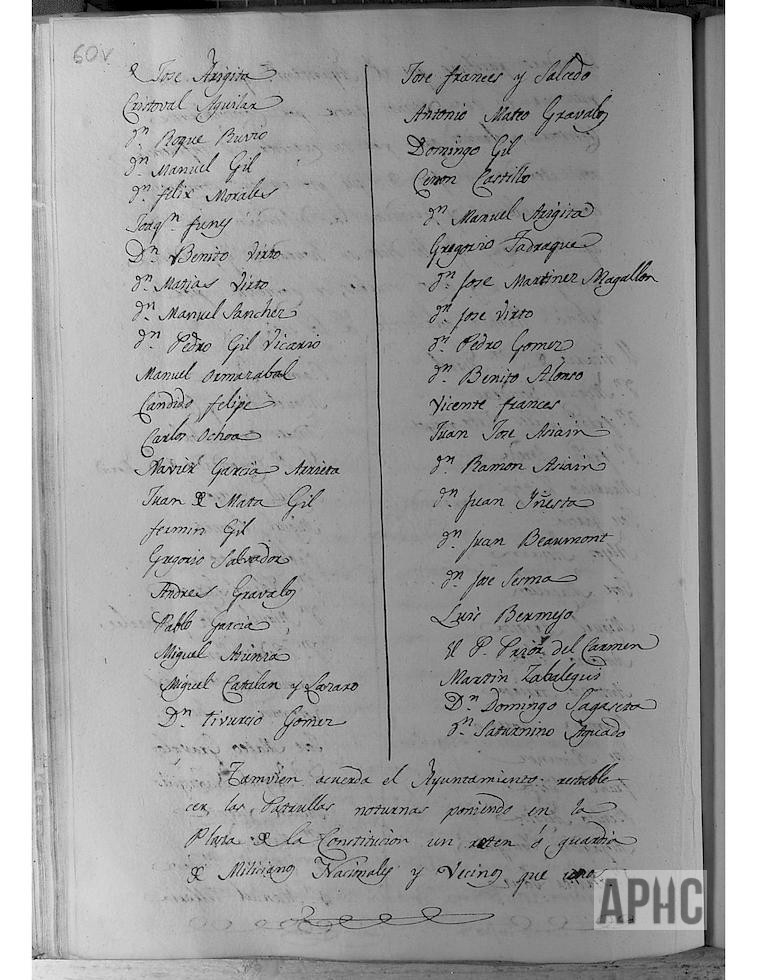 60v
de Jose Arigita
Cristoval Aguilar
Dn. Roque Ruvio
Dn. Manuel Gil
Dn. Felix Morales
Joaqn. Funes
Dn. Benito Virto
Dn. Matias Virto
Dn. Manuel Sanchez
Dn. Pedro Gil Vicario
Manuel Ormazabal
Candido Felipe
Carlos Ochoa
Xavier Garcia Arrieta
Juan de Mata Gil
Fermin Gil
Gregorio Salvador
Andres Gravalos
Pablo Garcia
Miguel Atienza
Miguel Catalan y Lazaro
Dn. Tivurcio Gomez
Jose Frances y Salcedo
Antonio Mateo Gravalos
Domingo Gil
Cenon Castillo
Dn. Manuel Arigita
Gregorio Jadraque
Dn. Jose Martinez Magallon
Dn. Jose Virto
Dn. Pedro Gomez
Dn. Benito Alonso
Vicente Frances
Juan Jose Aiain
Dn. Ramon Aiain
Dn. Juan Yñesta
Dn. Juan Beaumont
Dn. Jose Serma
Luis Bermejo
El P. Prior del Carmen
Martin Zabalegui
Dn. Domingo Sagaseta
Dn. Saturnino Aguado
Tamvien acuerda el Ayuntamiento restable-
cer las Patrullas noturnas poniendo en la
Plaza de la Constitucion un reten ó guardia
de Milicianos Nacionales y Vecinos que
APHC